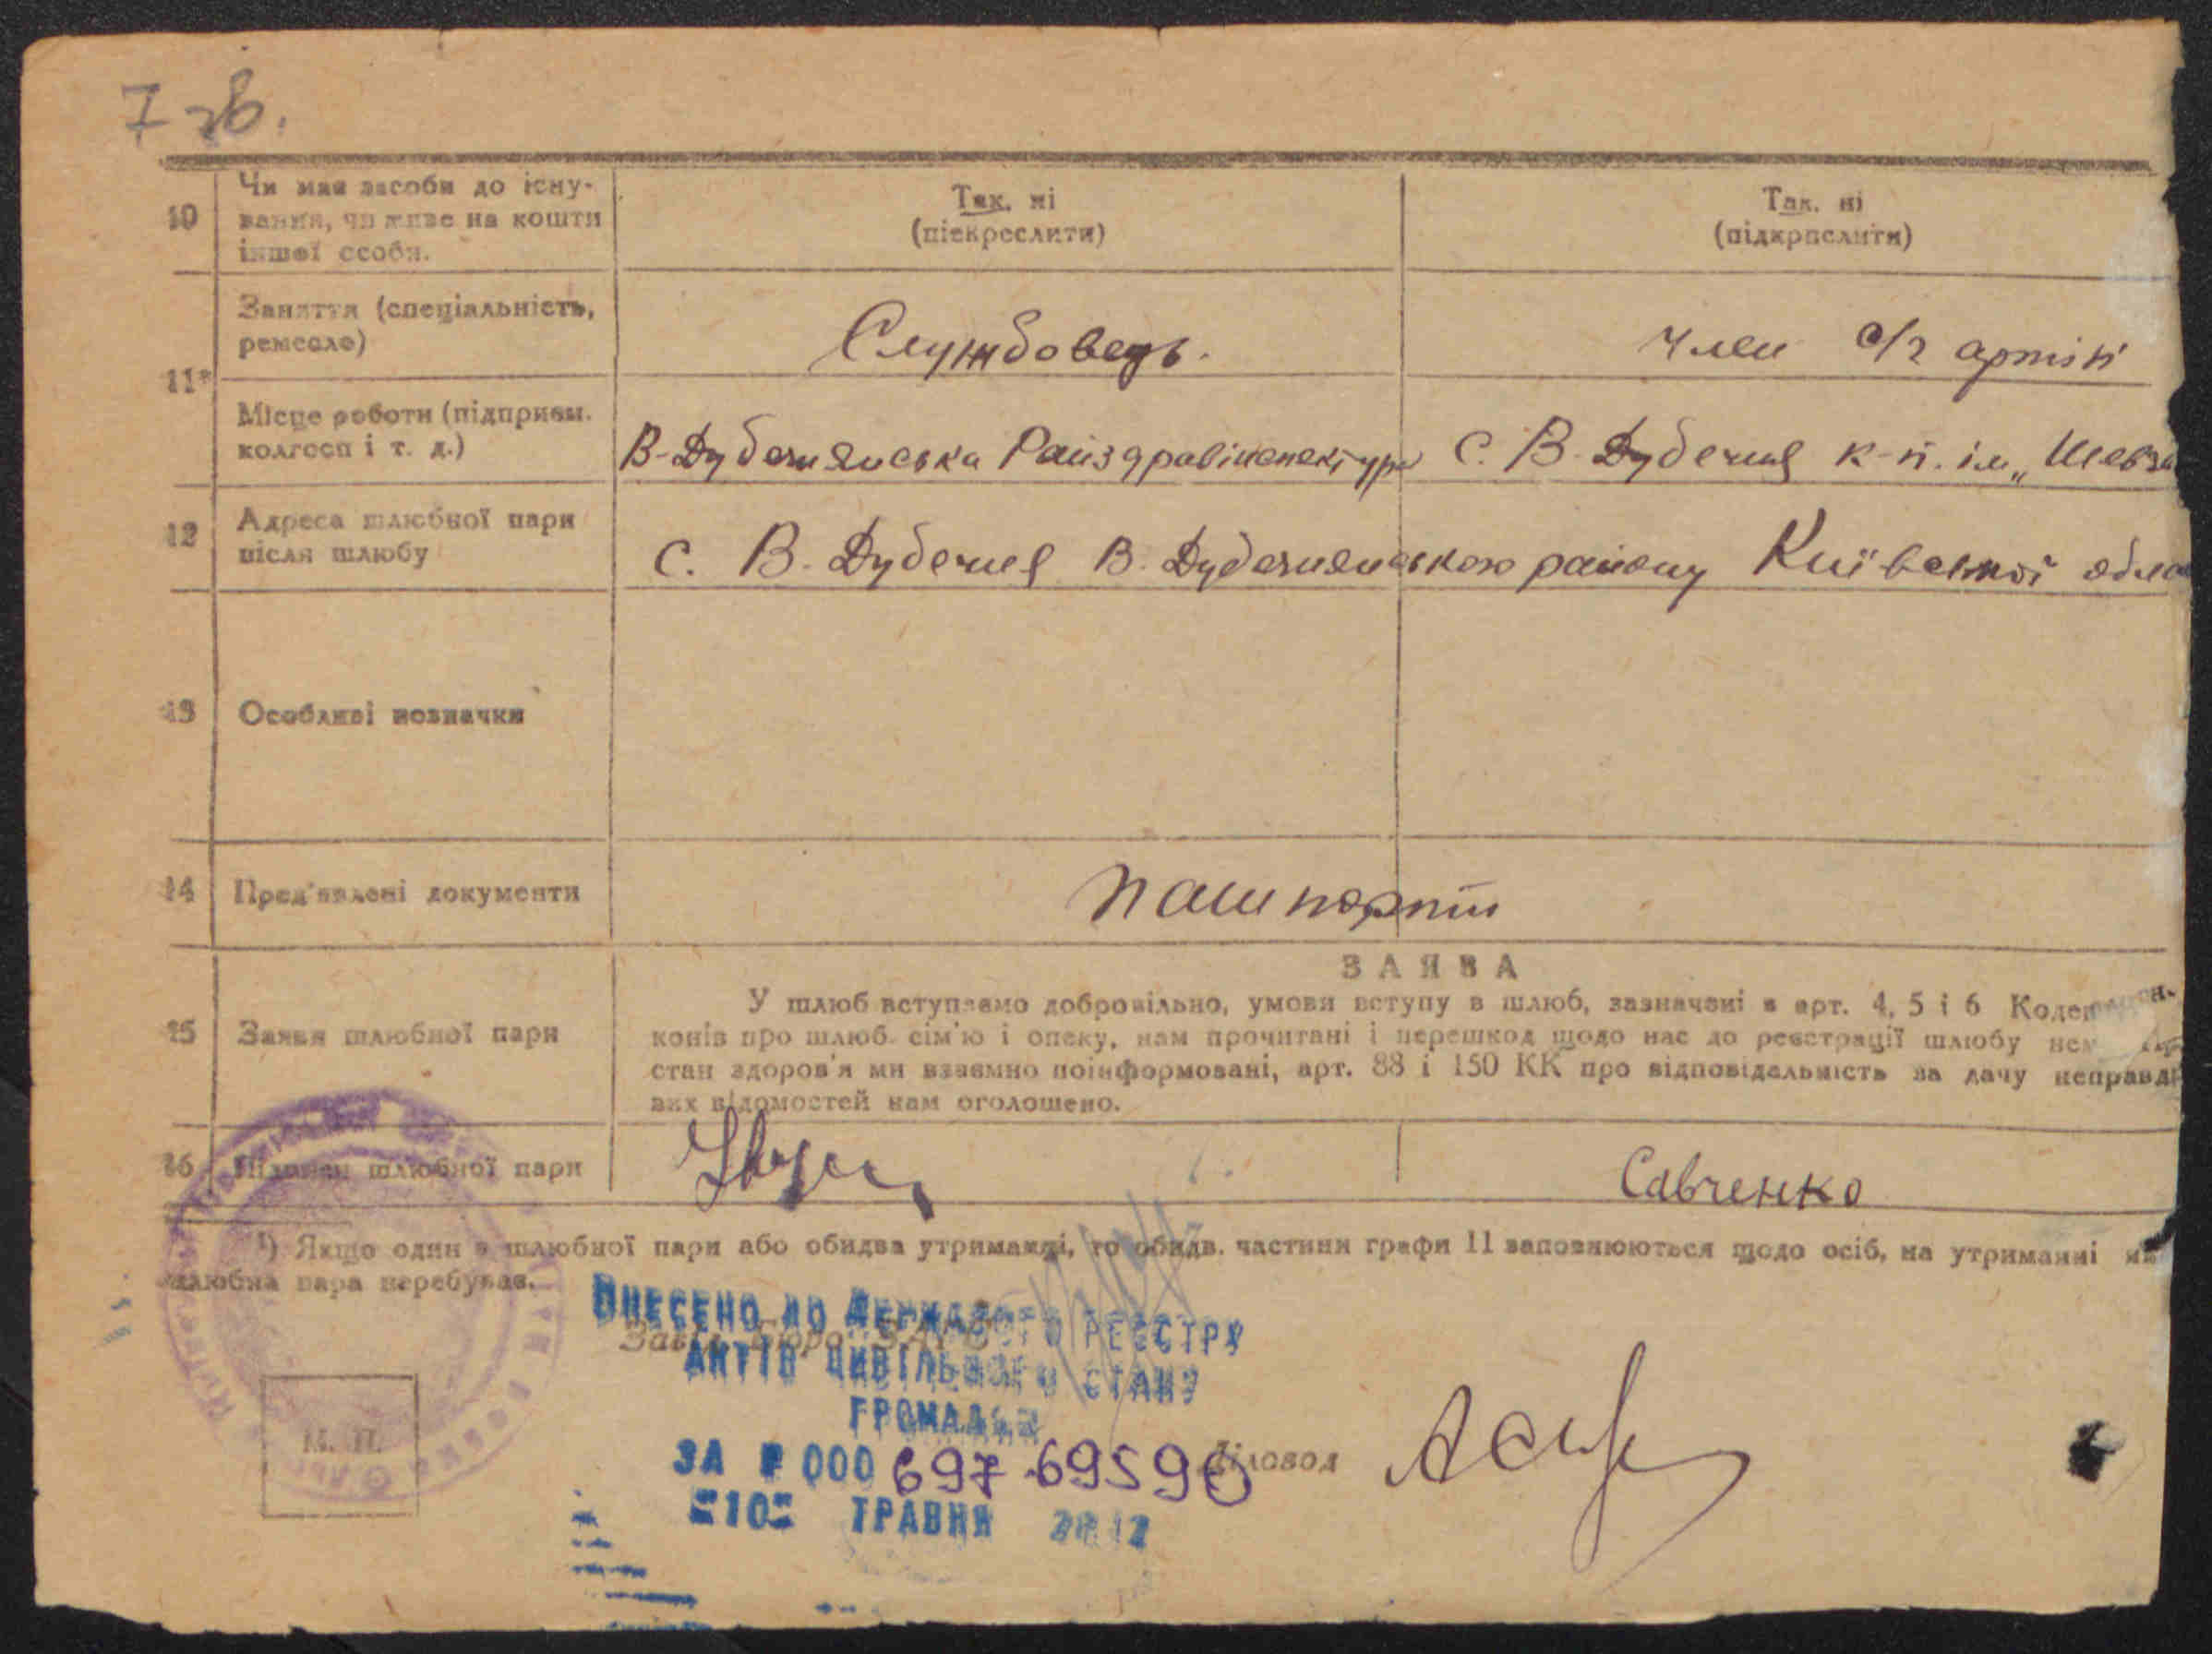 7 зв.
10
Чи має засоби до існу-
вання, чи живе на кошти
іншої особи.
Так. ні
(підкреслити)
Так. ні
(підкреслити)
11
Заняття (спеціальність,
ремесло)
Службовець.
член с/г артілі
Місце роботи (підприєм.
колгосп і т. д.)
В-Дубечнянська Райздравінспектура
С. В. Дубечня к-п. ім. „Шевч
12
Адреса шлюбної пари
після шлюбу
с. В. Дубечня В. Дубечнянського району Київської обла
13
Особливі позначки
14
Пред'явлені документи
пашпорти
15
Заява шлюбної пари
ЗАЯВА
У шлюб вступаємо добровільно, умови вступу в шлюб, зазначені в арт. 4, 5 і 6 Коде
конів про шлюб. сім'ю і опеку, нам прочитані і перешкод щодо нас до реєстрації шлюбу нем
стан здоров'я ми взаємно поінформовані, арт. 88 і 150 КК про відповідальність за дачу неправди
вих відомостей нам оголошено.
16
Підписи шлюбної пари
Савченко
¹) Якщо один з шлюбної пари або обидва утриманці, то обидв. частини графи 11 заповнюються щодо осіб, на утриманні як
шлюбна пара перебуває.
Зав. Бюро ЗАГС
ВНЕСЕНО ДО ДЕРЖАВНОГО РЕЄСТРУ
АКТІВ ЦИВІЛЬНОГО СТАНУ
ГРОМАДЯН
ЗА № 000 697 69590
Діловод
=10= ТРАВНЯ 2012
М. П.